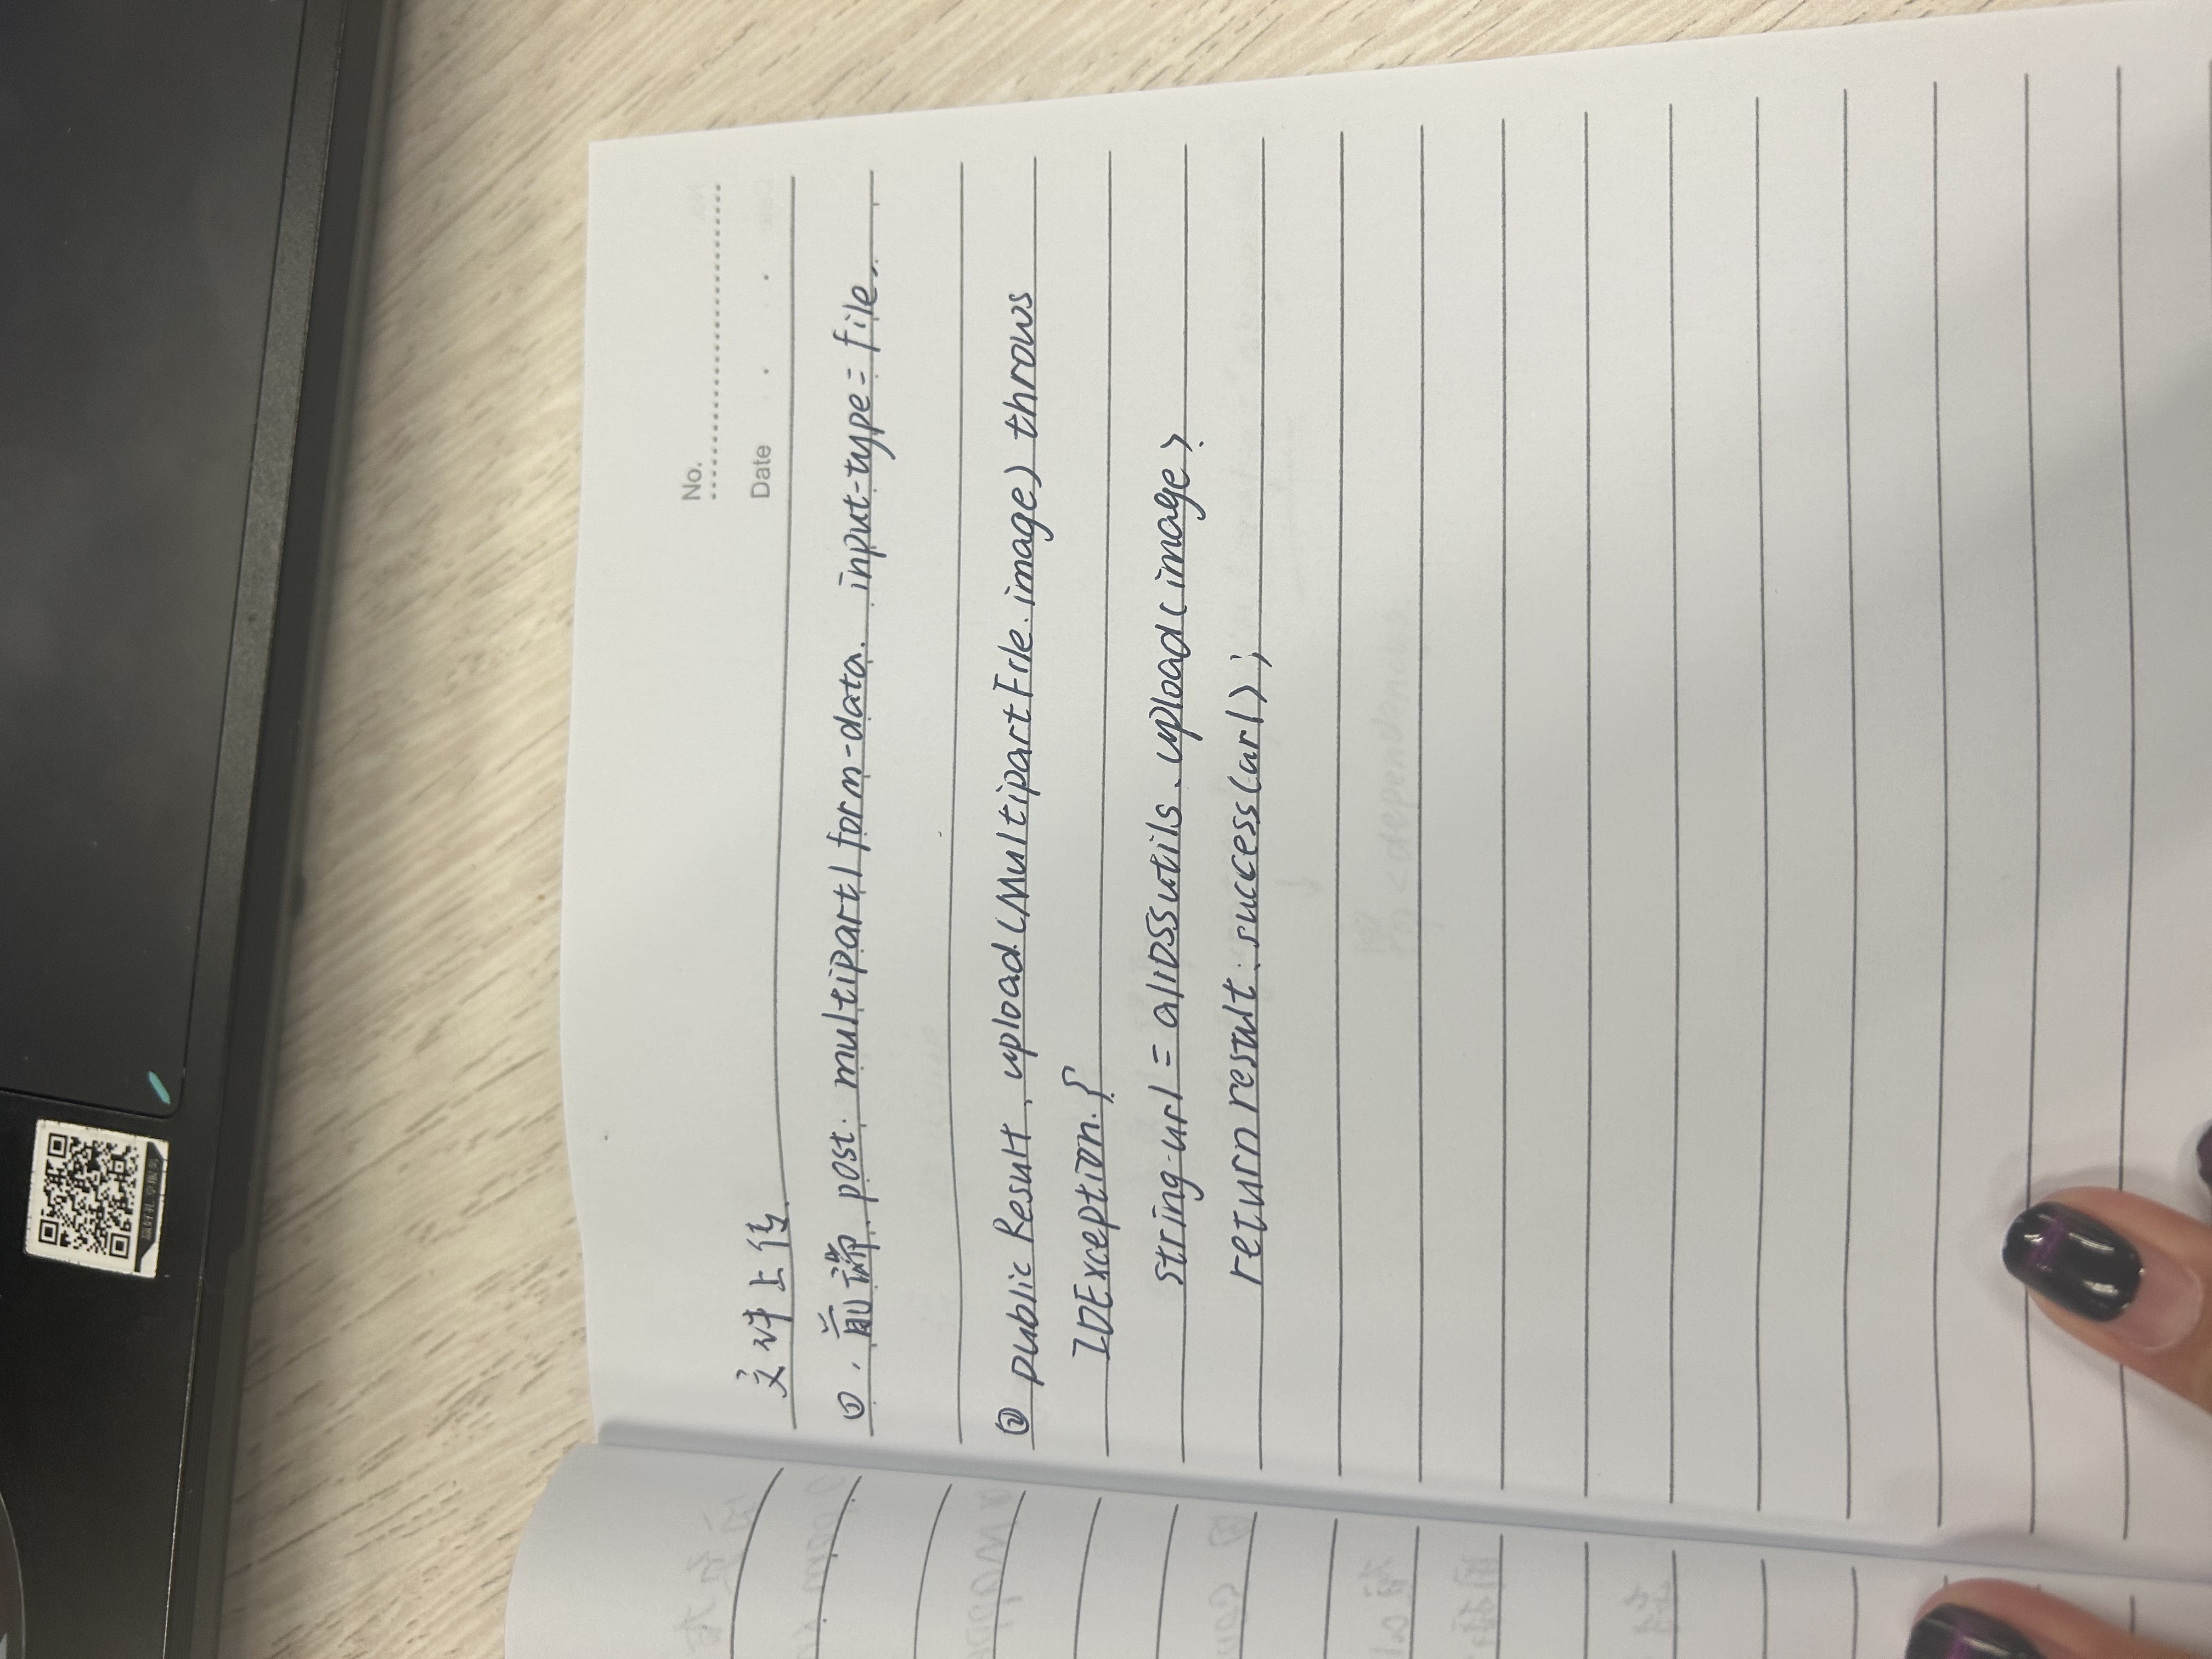 赢好礼 享服务
No.
Date
文件上传.
①. 前端. post. multipart/form-data. input-type=file.
② public Result. upload.(MultipartFile.image) throws
IOException.{
string.url = aliOSSutils.upload(image)
return result.success(url);
<dependencies